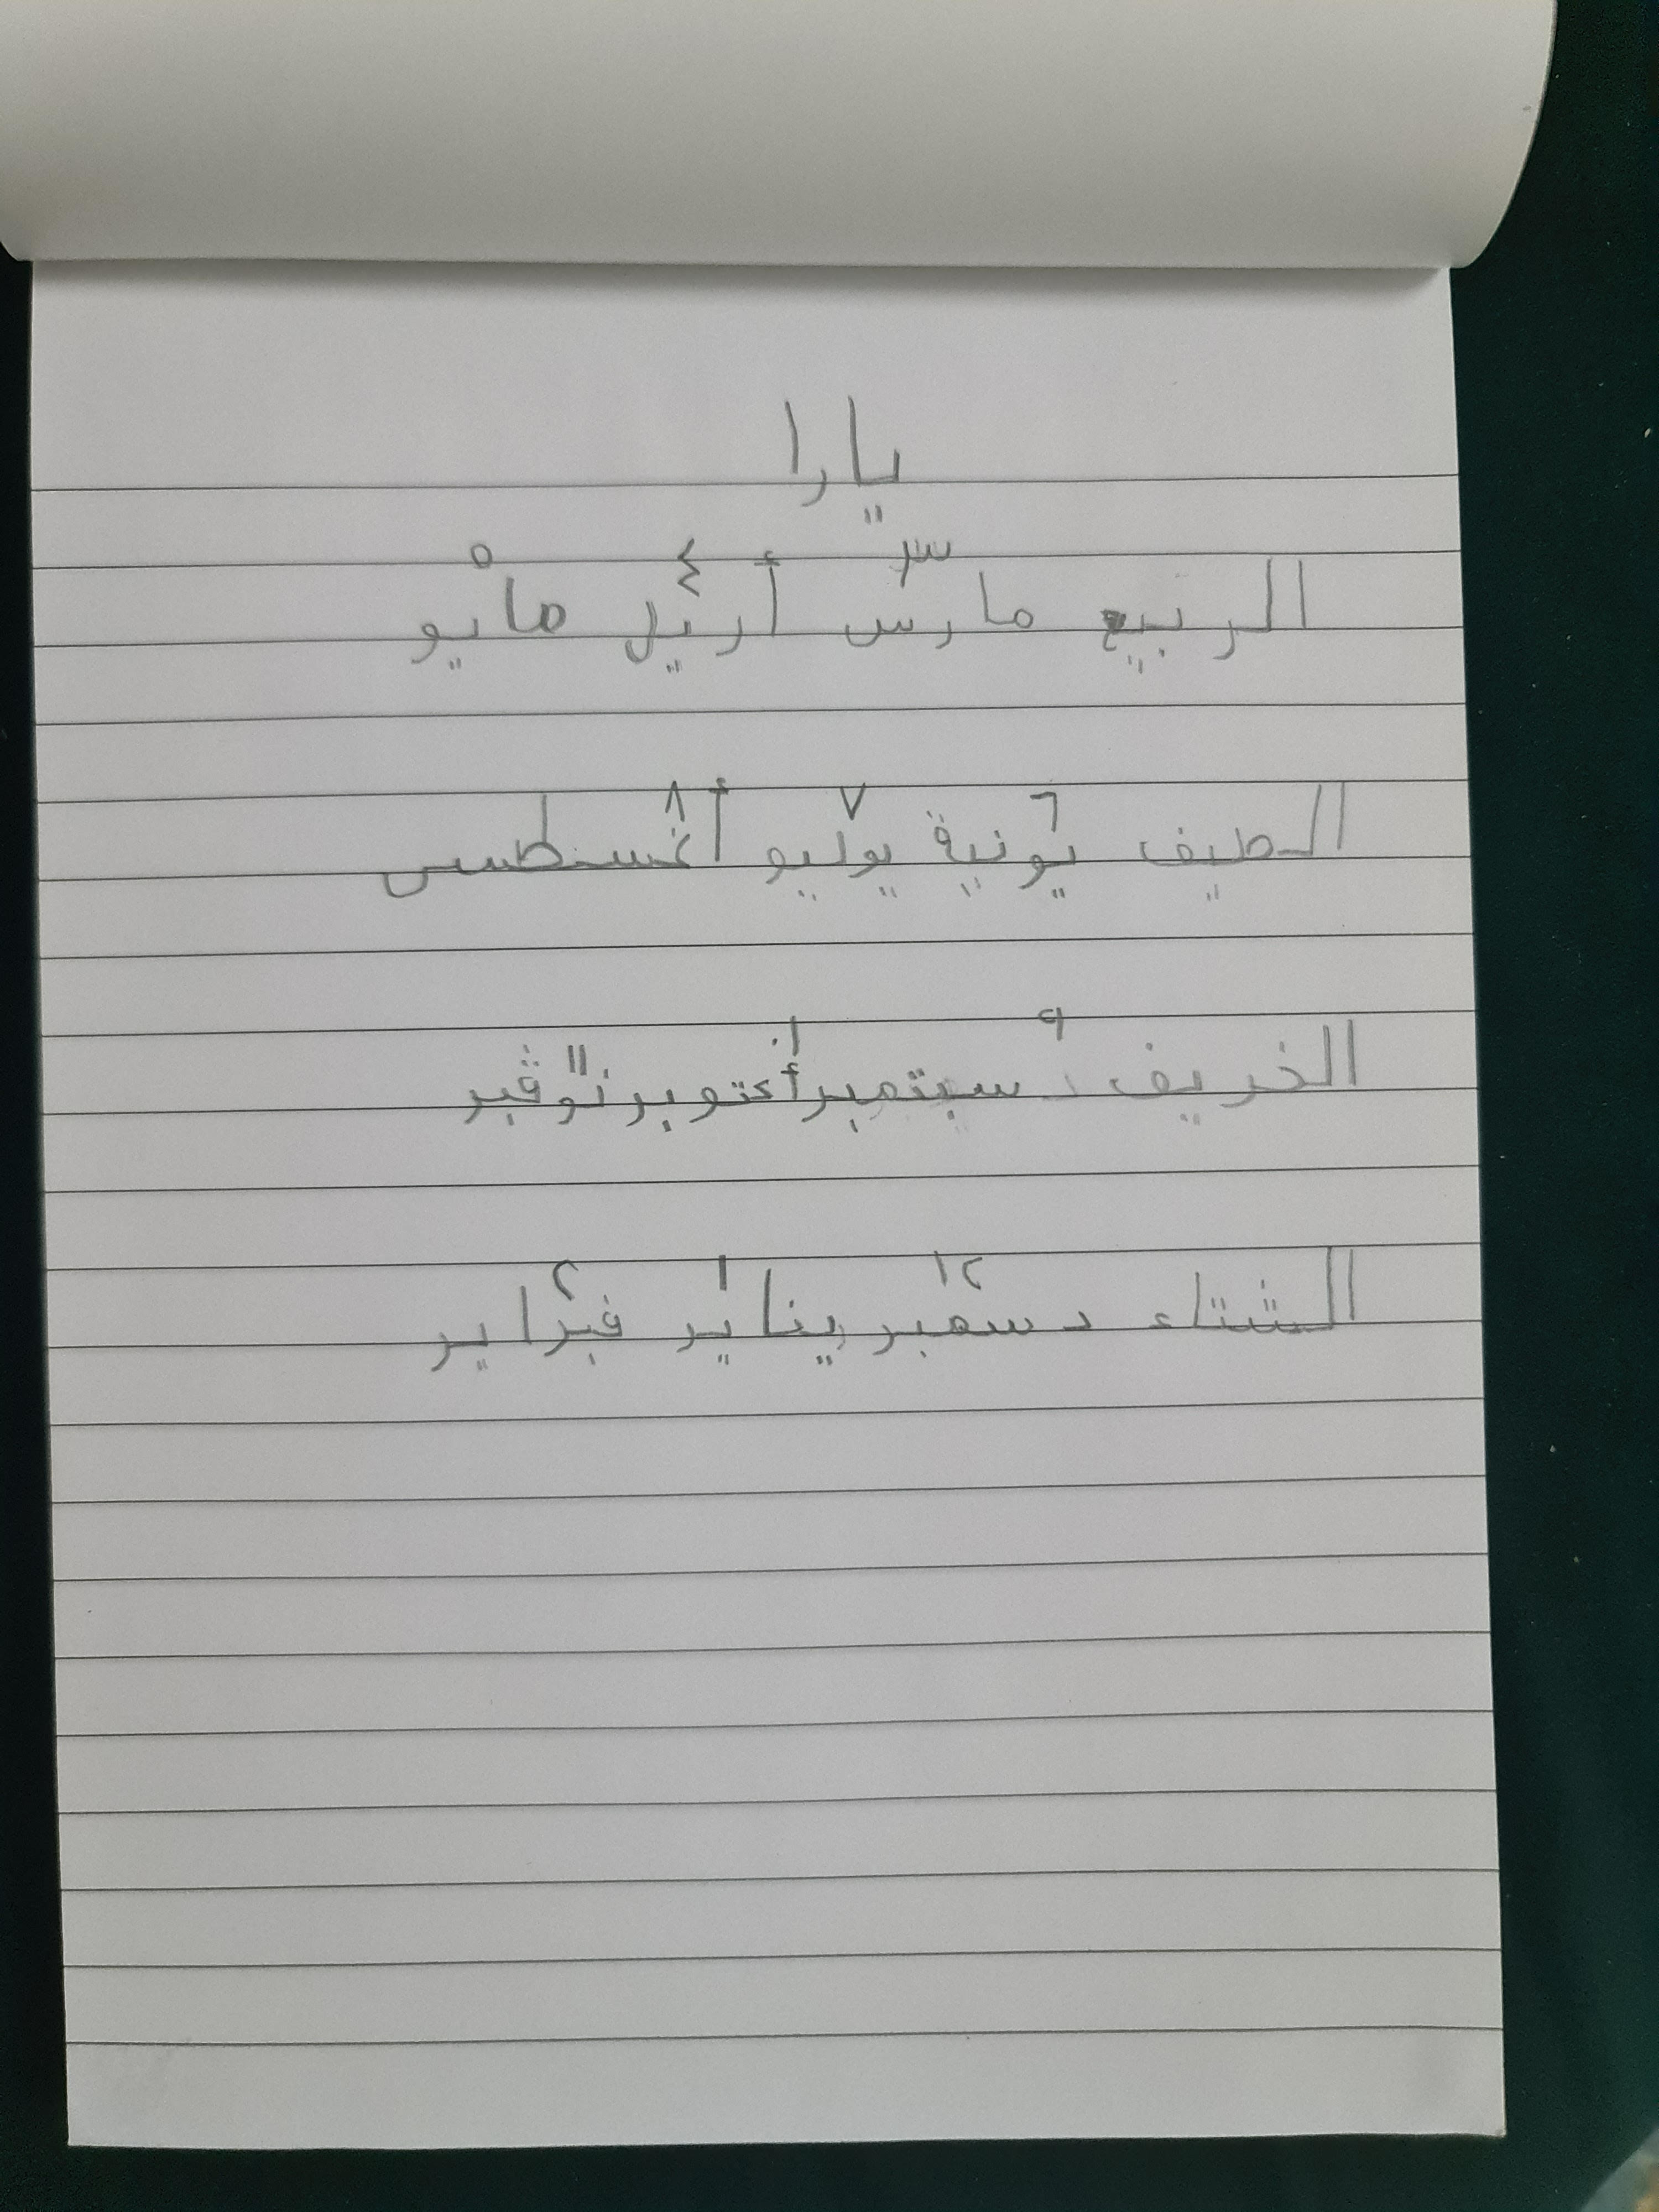 يارا
٣ ٤ ٥
الربيع مارس أريل مايو
٦ ٧ ٨
الصيف يونية يوليو أغسطس
٩ ١٠ ١١
الخريف سبتمبر أكتوبر نوڤبر
١٢ ١ ٢
الشتاء دسمبر يناير فبراير